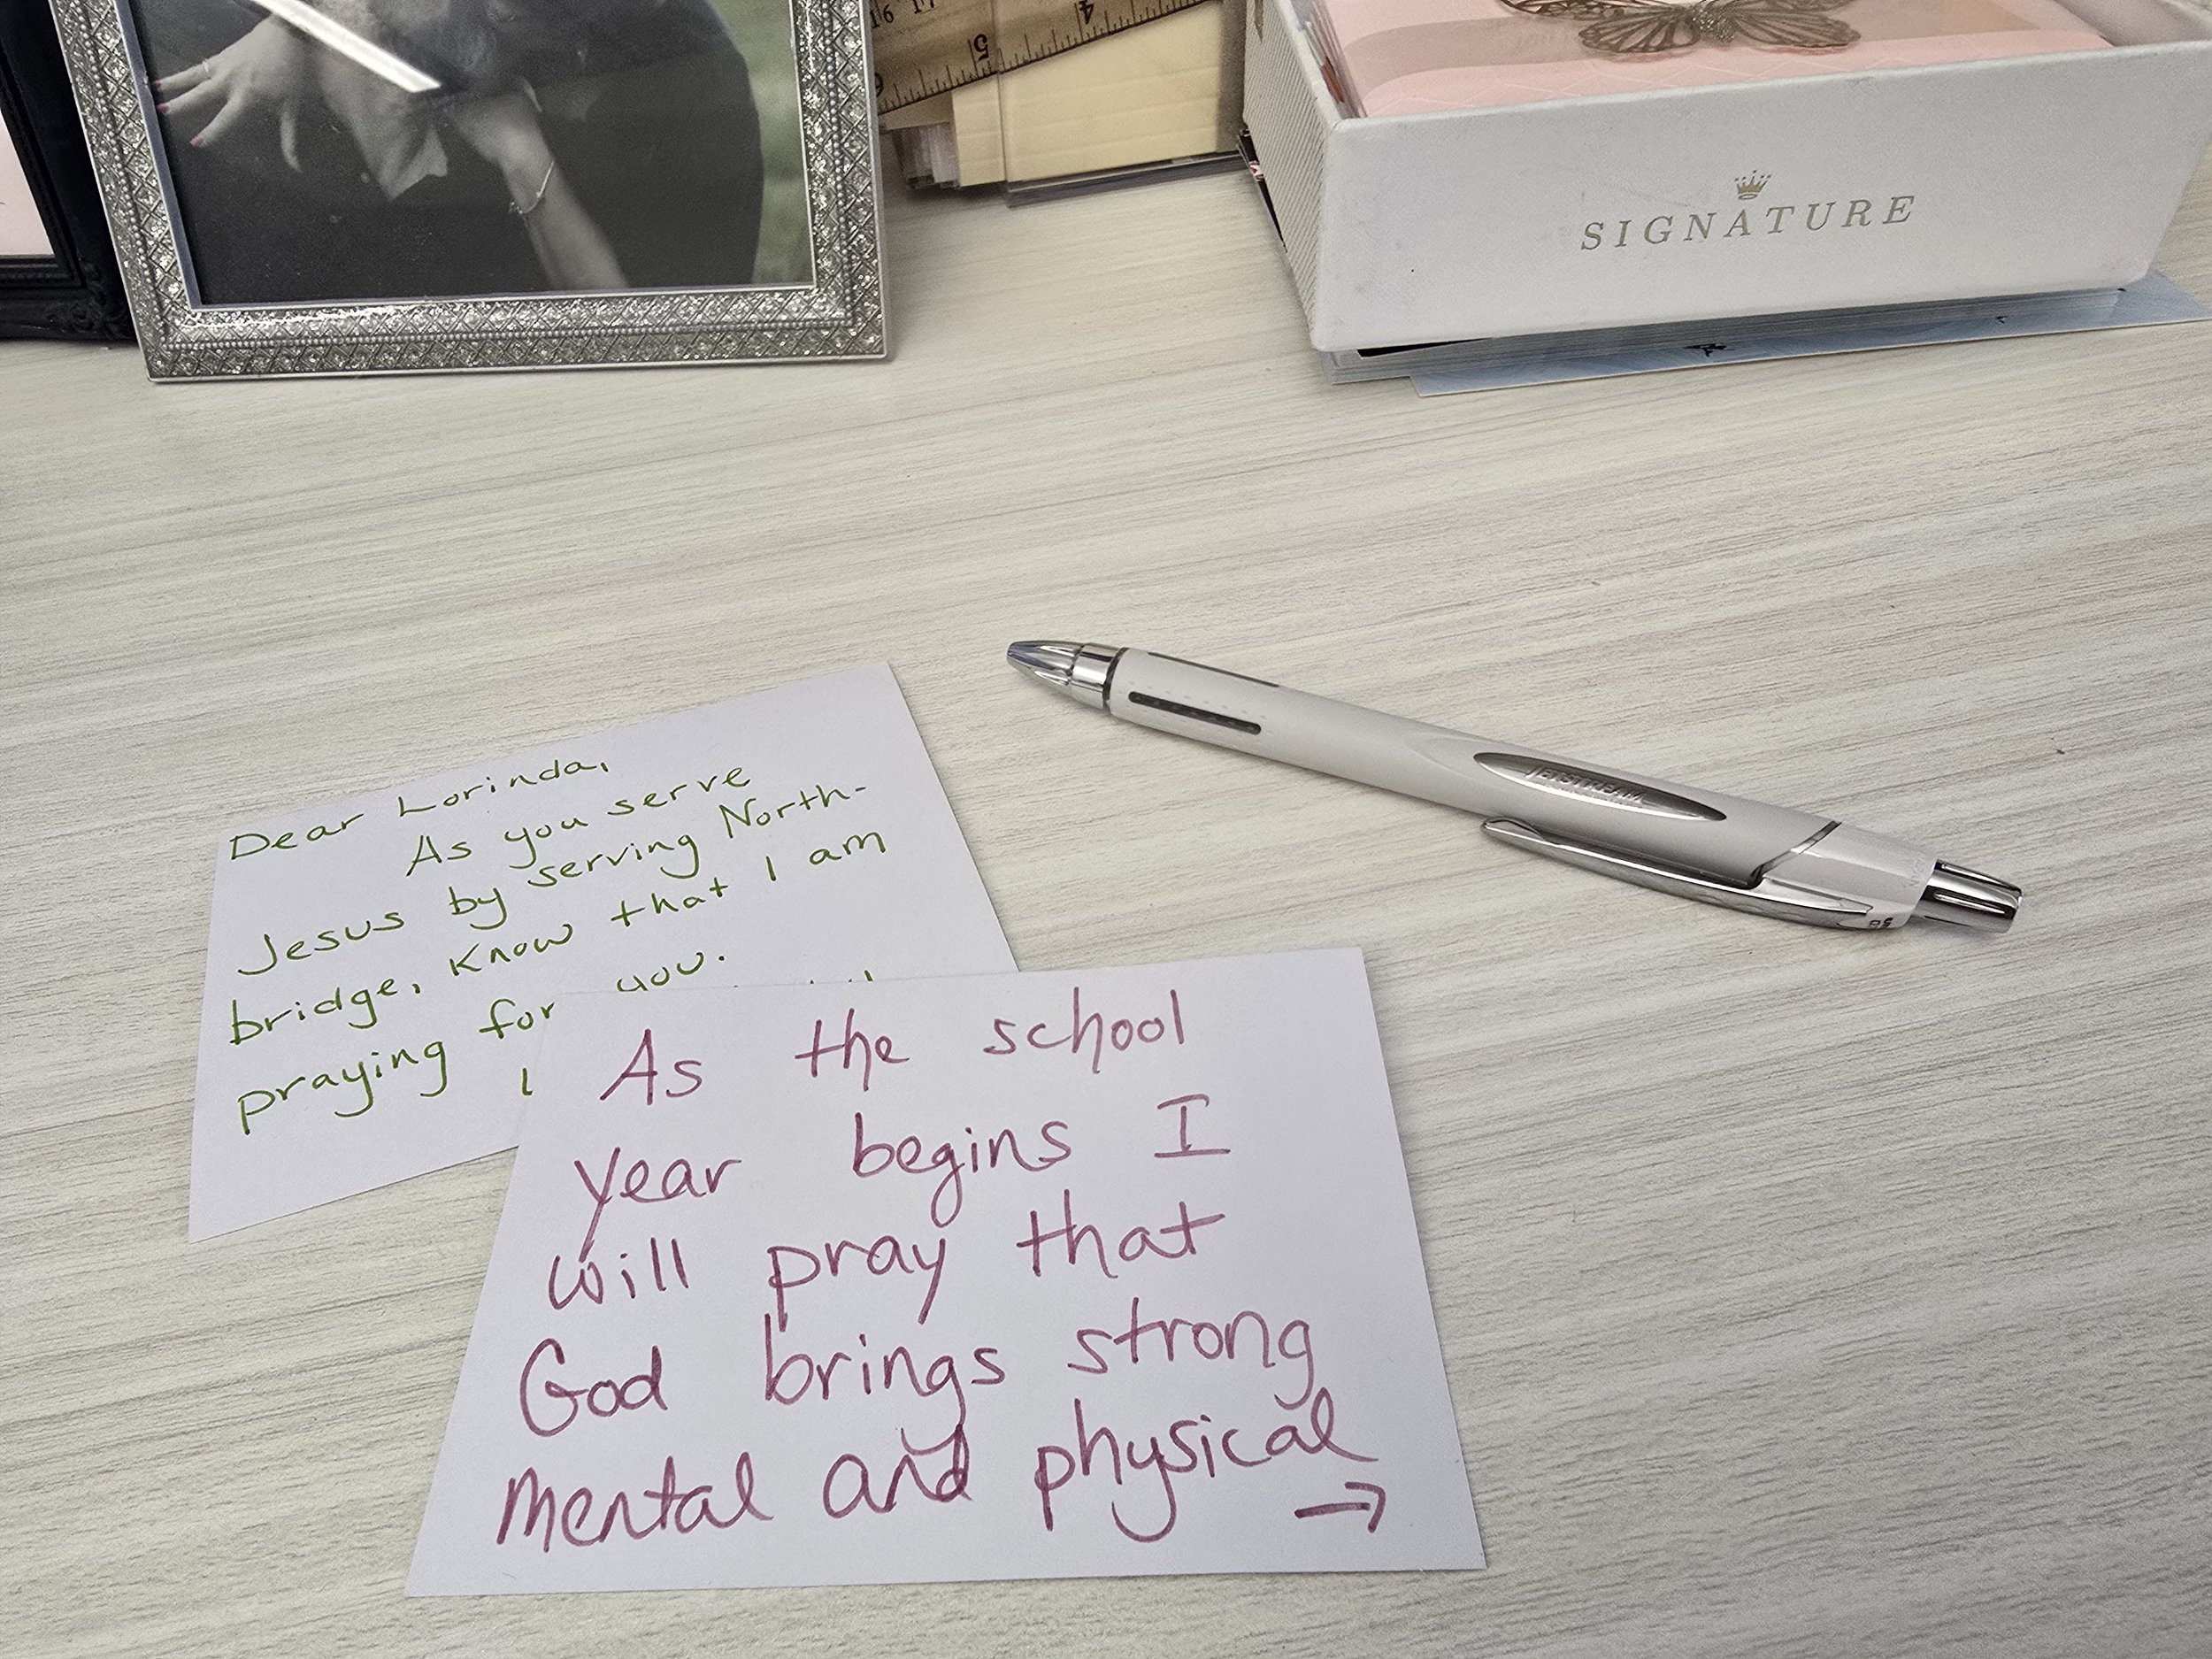 16 17
4
5
SIGNATURE
JETSTREAM
Dear Lorinda,
As you serve
Jesus by serving North-
bridge, know that I am
praying for you.
I
As the school
year begins I
will pray that
God brings strong
mental and physical
→